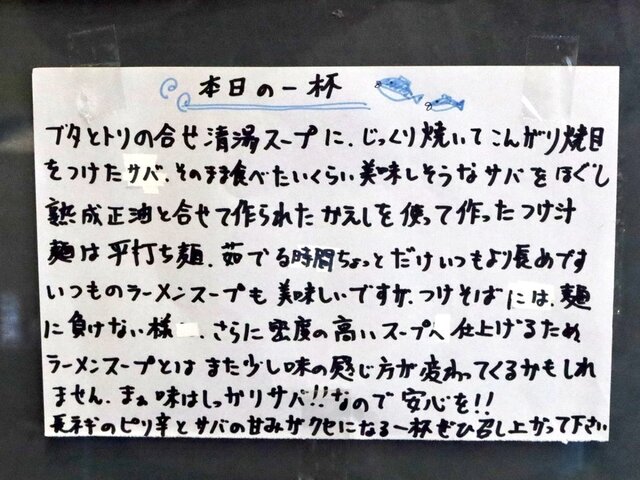 本日の一杯
ブタとトリの合せ清湯スープに、じっくり焼いてこんがり焼目
をつけたサバ、そのまま食べたいくらい美味しそうなサバをほぐし
熟成正油と合せて作られたかえしを使って作ったつけ汁
麺は平打ち麺、茹でる時間ちょっとだけいつもより長めです
いつものラーメンスープも美味しいですが、つけそばには、麺
に負けない様、さらに密度の高いスープへ仕上げるため
ラーメンスープとはまた少し味の感じ方が変わってくるかもしれ
ません。まぁ味はしっかりサバ!!なので安心を!!
長ネギのピリ辛とサバの甘みがクセになる一杯ぜひ召し上がって下さい